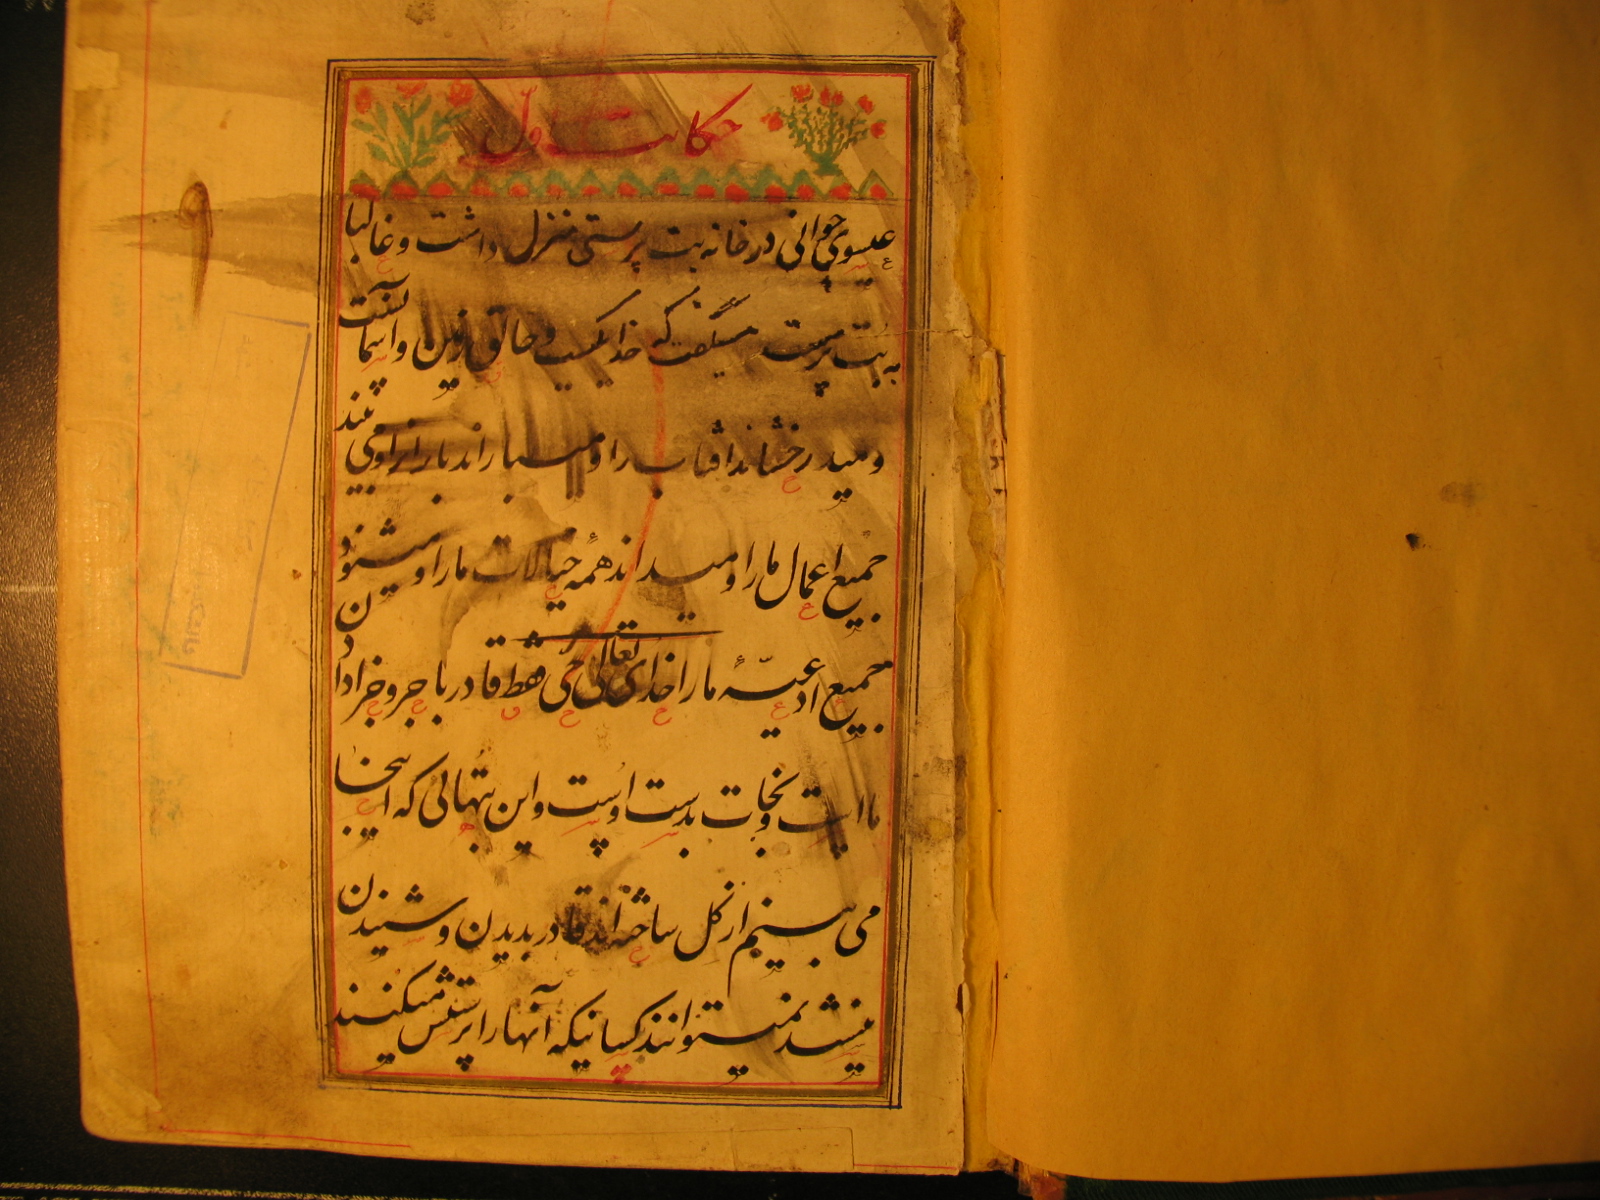 حکایت اول
عیسوی جوانی در خانه بت پرستی منزل داشت و غالبا
به بت پرست میگفت که خدا یکیست و خالق زمین و آسمانست
و میدرخشاند افتاب را و میباراند باران را و می بیند
جمیع اعمال ما را و میداند همهٔ خیالات ما را و میشنود
جمیع ادعیهٔ ما را خدای تعالی حی فقط قادر با جر و جزا دادن
ما است و نجات بدست اوست و این بتهائی که اینجا
می بینیم از گل ساخته اند قادر بدیدن و شنیدن
نیستند نمیتوانند کسانیکه آنها را پرستش میکنند